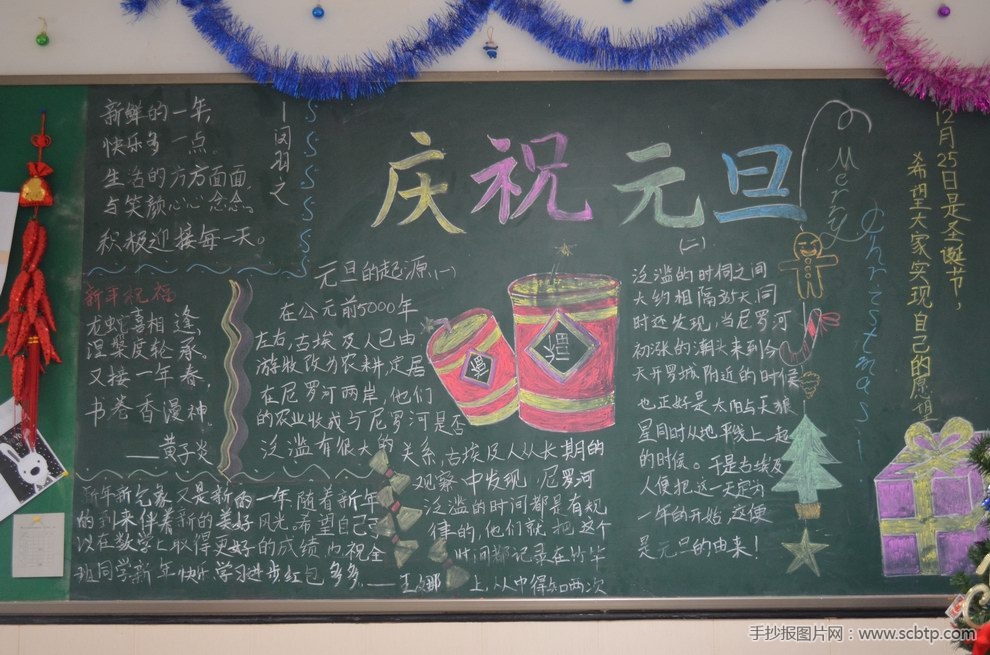 新鲜的一年,
快乐多一点.
生活的方方面面,
与笑颜心心念念,
积极迎接每一天。
庆祝元旦
Merry
Christmas!
12月25日是圣诞节,
希望大家实现自己的愿
新年祝福
龙蛇喜相逢,
涅槃度轮承,
又接一年春,
书卷香漫神.
——黄子炎
新年新气象又是新的一年随着新年
的到来伴着新的美好风光.希望自己
以在数学上取得更好的成绩.内祝全
班同学新年快乐学习进步红包多多.——王娜
元旦的起源(一)
在公元前5000年
左右,古埃及人已由
游牧改为农耕,定居
在尼罗河两岸,他们
的农业收成与尼罗河是否
泛滥有很大的关系,古埃及人从长期的
观察中发现,尼罗河
泛滥的时间都是有规
律的,他们就把这个
时间都记录在竹竿
上,从中得知两次
福
福
(二)
泛滥的时间之间
大约相隔365天同
时还发现,当尼罗河
初涨的潮头来到今
天开罗城附近的时候
也正好是太阳与天狼
星同时从地平线上一起
的时候。于是古埃及
人便把这一天定为
一年的开始,这便
是元旦的由来!
手抄报图片网:www.scbtp.com